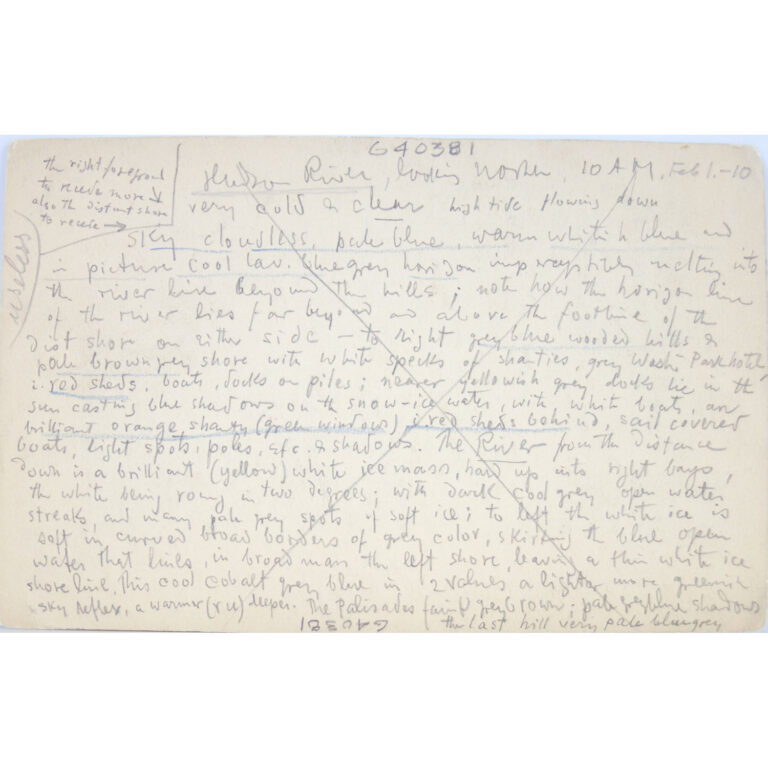 640381
the right foregrnd
to receive more →
also the distant shore
to recede →
useless
Hudson River, looking North, 10 AM, Feb 1.-10
very cold & clear high tide flowing down
Sky cloudless, pale blue, warm whitish blue and
in picture cool lav. bluegrey horizon imperceptibly melting into
the river line beyond the hills; note how the horizon line
of the river lies far beyond and above the footline of the
dist shore on either side – to right greyblue wooded hills &
pale browngrey shore with white specks of shanties, grey Wash. Park hotel,
red sheds, boats, docks on piles; nearer yellowish grey docks lie in the
sun casting blue shadows on the snow-ice water, with white boats, an
brilliant orange shanty (green windows), red sheds behind, sail covered
boats, light spots, poles, etc. & shadows. The River from the distance
down is a brilliant (yellow) white ice mass, hard up into right bays,
the white being in two degrees; with dark cool grey open water
streaks, and many pale grey spots of soft ice; to left the white ice is
soft in curved broad borders of grey color, skirting the blue open
water that lines, in broad mass the left shore, leaving a thin white ice
shore line, this cool cobalt grey blue in 2 values a lighter more greenish
sky reflex, a warmer deeper. The Palisades greybrown; pale greyblue shadows
the last hill very pale bluegrey
640381